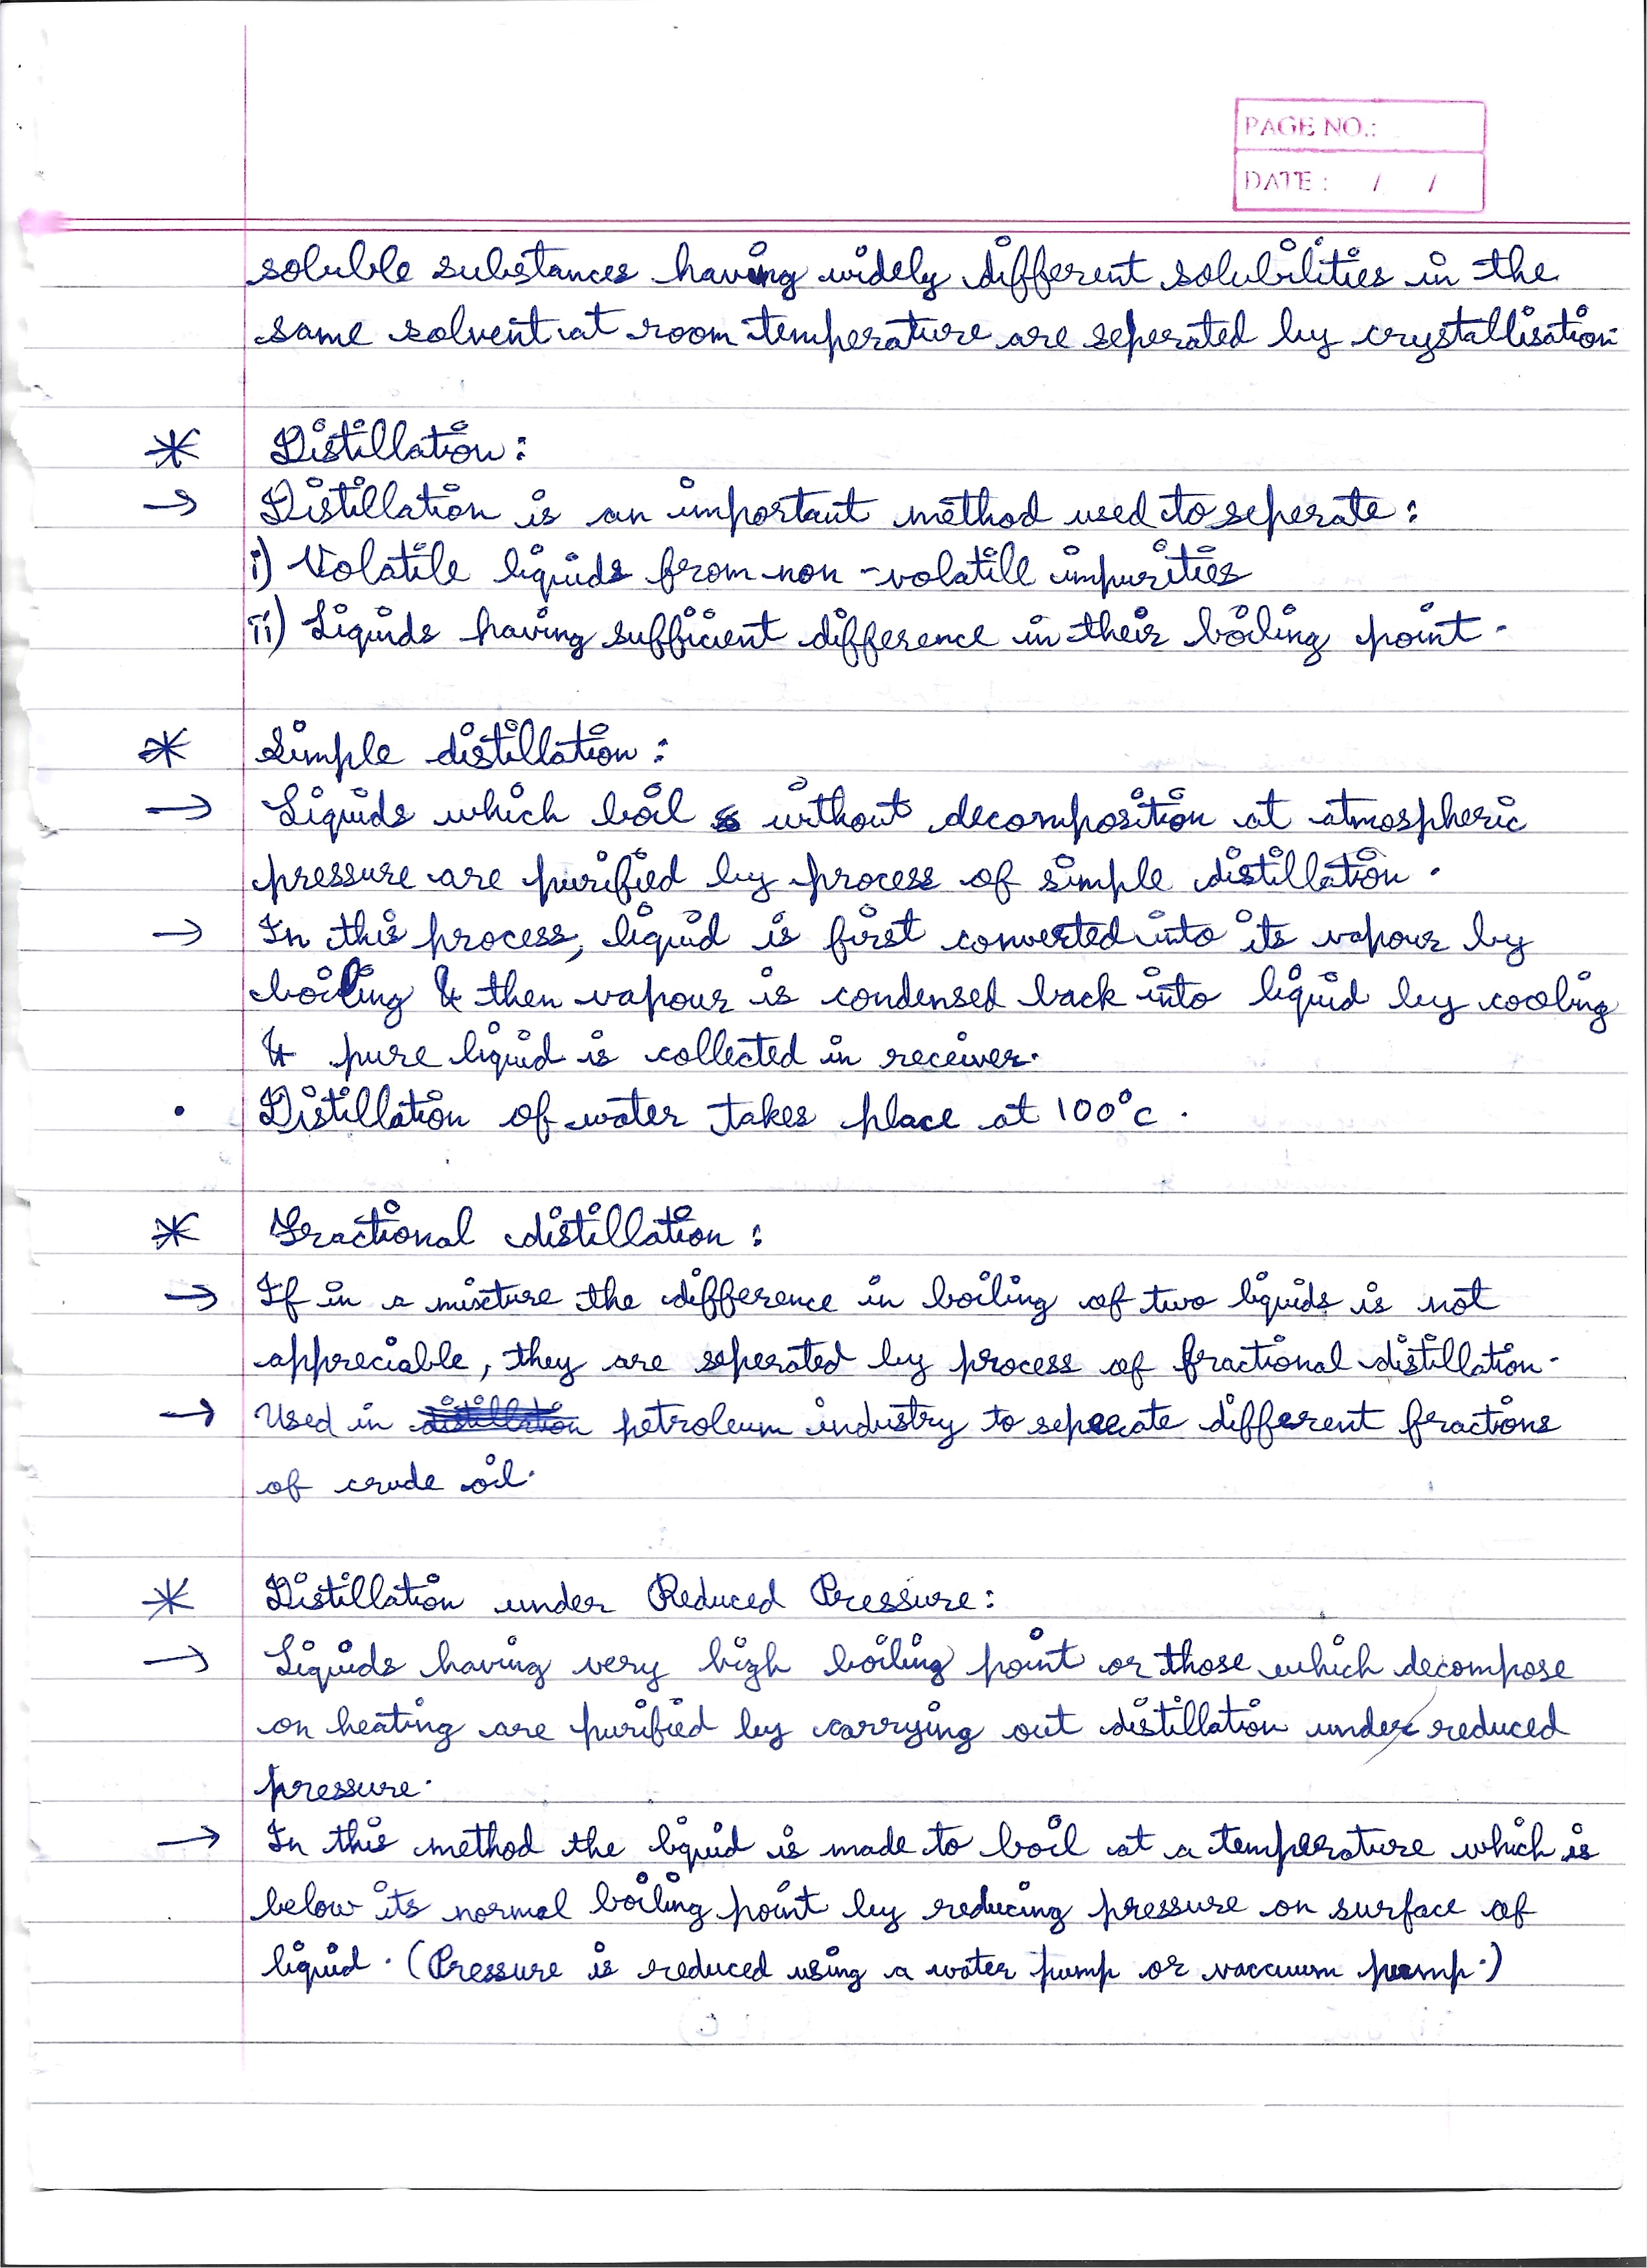 PAGE NO.:
DATE : / /
soluble substances having widely different solubilities in the
same solvent at room temperature are seperated by crystallisation.
* Distillation :
→ Distillation is an important method used to seperate :
i) Volatile liquids from non-volatill impurities
ii) Liquids having sufficient difference in their boiling point.
* Simple distillation :
→ Liquids which boil without decomposition at atmospheric
pressure are purified by process of simple distillation.
→ In this process, liquid is first converted into its vapour by
boiling & then vapour is condensed back into liquid by cooling
& pure liquid is collected in receiver.
• Distillation of water takes place at 100°c.
* Fractional distillation :
→ If in a mixture the difference in boiling of two liquids is not
appreciable, they are seperated by process of fractional distillation.
→ Used in distillation petroleum industry to seperate different fractions
of crude oil.
* Distillation under Reduced Pressure :
→ Liquids having very high boiling point or those which decompose
on heating are purified by carrying out distillation under reduced
pressure.
→ In this method the liquid is made to boil at a temperature which is
below its normal boiling point by reducing pressure on surface of
liquid. (Pressure is reduced using a water pump or vaccuum pump.)